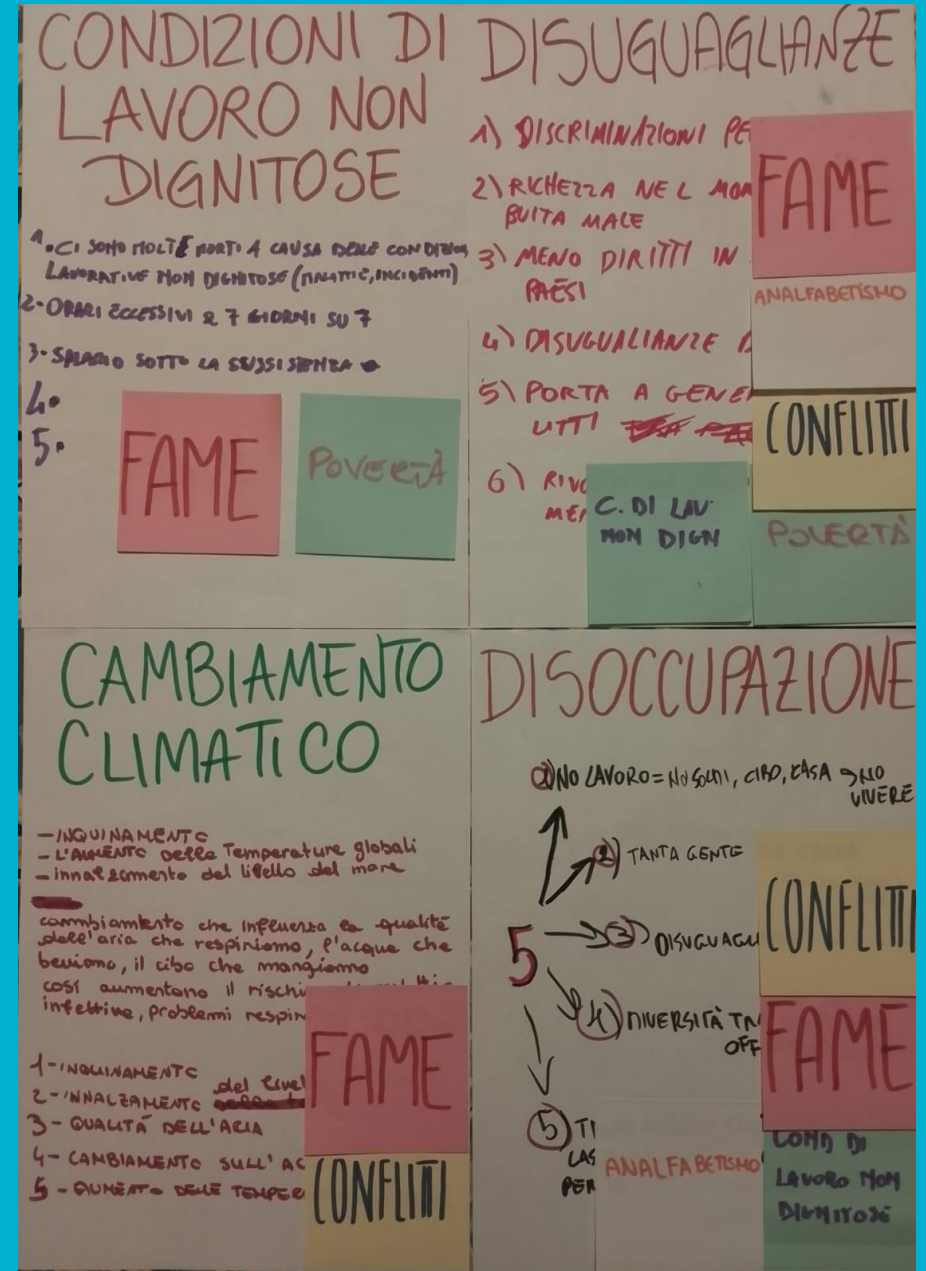 CONDIZIONI DI
LAVORO NON
DIGNITOSE
1. CI SONO MOLTE MORTI A CAUSA DELLE CONDIZIONI
LAVORATIVE NON DIGNITOSE (MALATTIE, INCIDENTI)
2- ORARI ECCESSIVI 7 GIORNI SU 7
3- SALARIO SOTTO LA SUSSISTENZA
4.
5.
FAME
POVERTÀ
DISUGUAGLIANZE
1) DISCRIMINAZIONI PE
2) RICHEZZA NEL MON
BUITA MALE
3) MENO DIRITTI IN
PAESI
4) DISUGUALIANZE
5) PORTA A GENE
LITTI
6) RIVO
ME
FAME
ANALFABETISMO
CONFLITTI
C. DI LAV.
NON DIGN
POVERTÀ
CAMBIAMENTO
CLIMATICO
- INQUINAMENTO
- L'AUMENTO delle Temperature globali
- innalzamento del livello del mare
cambiamento che influenza la qualità
dell'aria che respiriamo, l'acqua che
beviamo, il cibo che mangiamo
così aumentano il rischi
infettive, problemi respir
1- INQUINAMENTO
2- INNALZAMENTO del livel
3- QUALITÀ DELL'ARIA
4- CAMBIAMENTO SULL'AC
5- AUMENTO DELLE TEMPER
FAME
CONFLITTI
DISOCCUPAZIONE
1) NO LAVORO = NO SOLDI, CIBO, CASA → NO
VIVERE
2) TANTA GENTE
5
3) DISUGUAGLI
4) DIVERSITÀ TRA
OFF
5) TI
LAS
PER
CONFLITTI
FAME
ANALFABETISMO
COND DI
LAVORO NON
DIGNITOSE